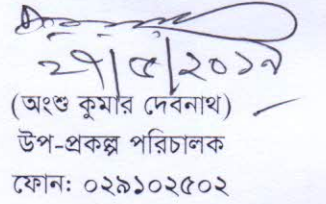 ২৭|৫|২০১৭
(অংশু কুমার দেবনাথ)
উপ-প্রকল্প পরিচালক
ফোন: ০২৯১০২৫০২